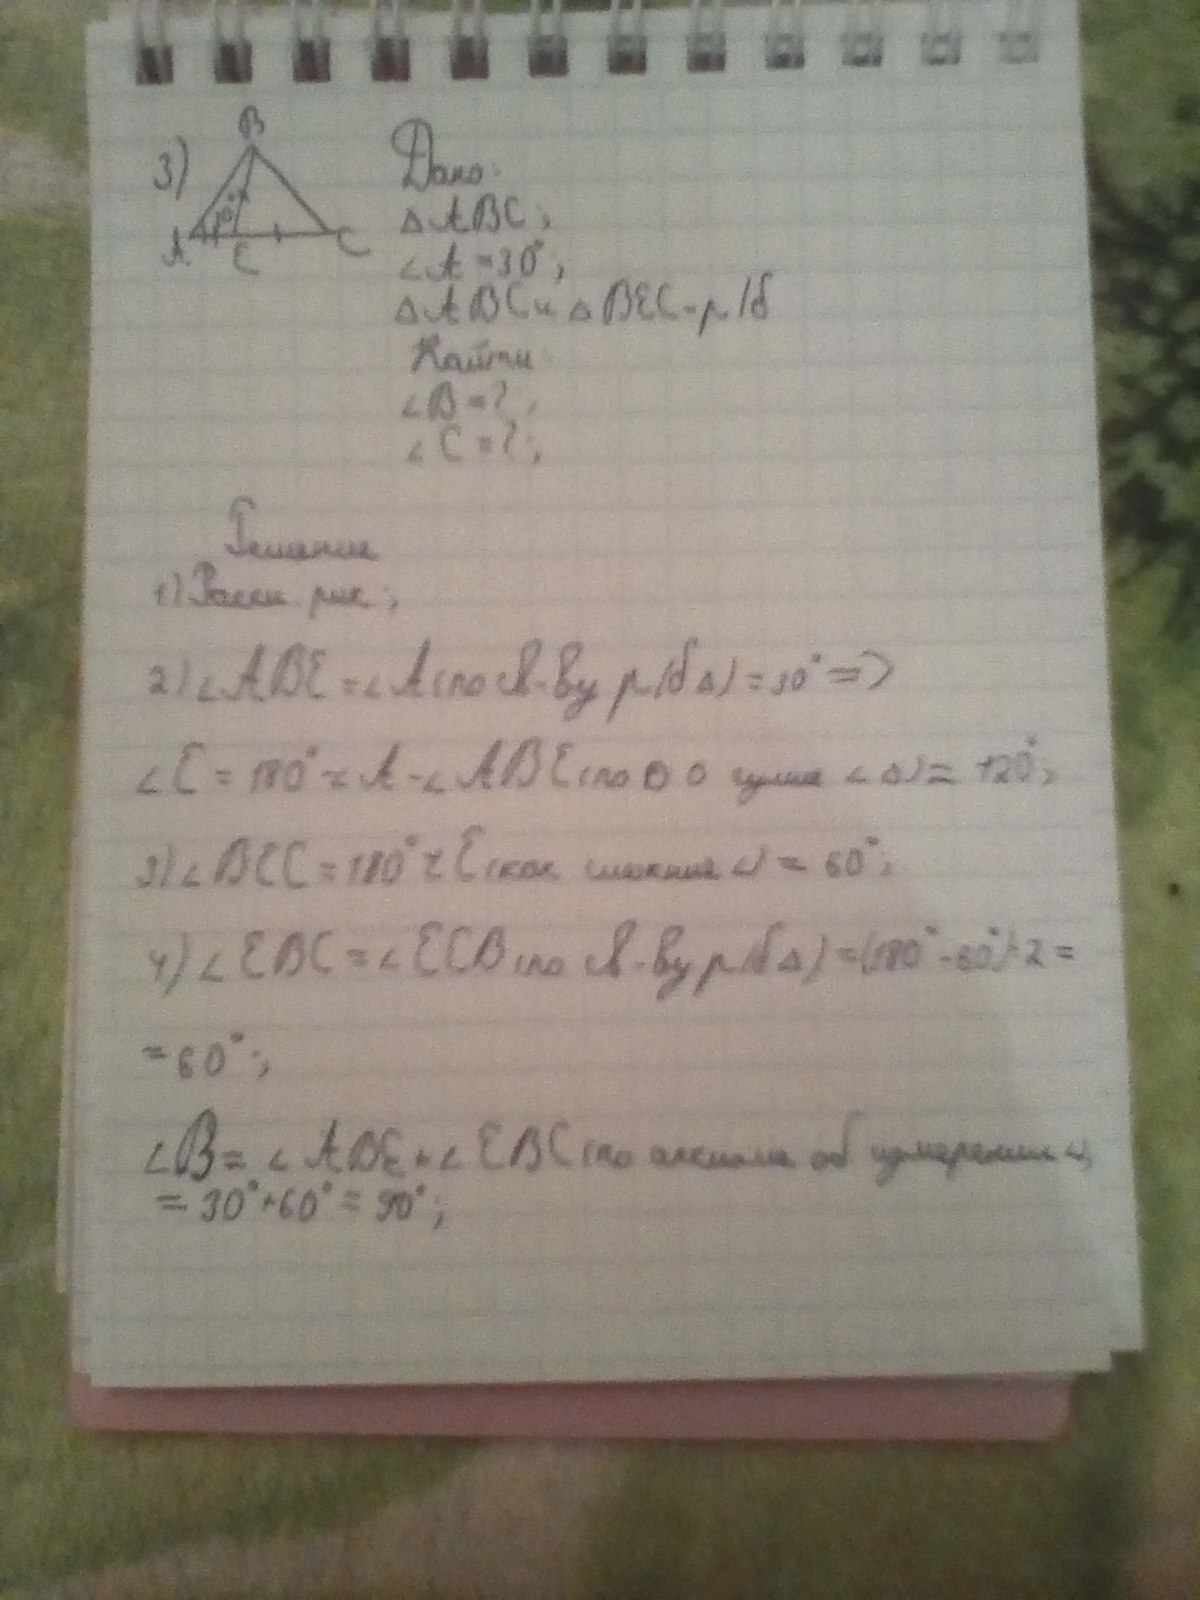 3)
B
A E C
Дано:
△ABC;
∠A = 30°;
△ABC и △BEC - р/б
Найти:
∠B = ?;
∠C = ?;
Решение
1) Рассм. рис.;
2) ∠ABE = ∠A (по св-ву р/б △) = 30° =>
∠E = 180° - ∠A - ∠ABE (по о сумме ∠ △) = 120°;
3) ∠BEC = 180° - ∠E (как смежные ∠) = 60°;
4) ∠EBC = ∠ECB (по св-ву р/б △) = (180° - 60°) : 2 =
= 60°;
∠B = ∠ABE + ∠EBC (по аксиоме об измерении ∠)
= 30° + 60° = 90°;